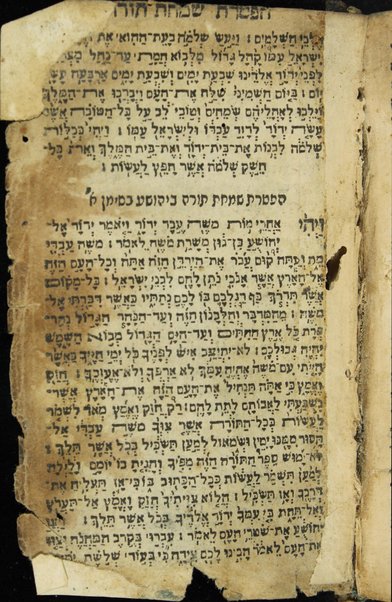 הפטרת שמחת תורה
חלבי השלמים : ויעש שלמה בעת ההוא את
ישראל עמו קהל גדול מלבוא חמת עד נחל
לפני ידוד אלהינו שבעת ימים ושבעת ימים ארבעה עשר
יום : ביום השמיני שלח את העם ויברכו את המלך
וילכו לאהליהם שמחים וטובי לב על כל הטובה אשר
עשה ידוד לדוד עבדו ולישראל עמו : ויהי ככלות
שלמה לבנות את בית ידוד ואת בית המלך ואת כל
חשק שלמה אשר חפץ לעשות :
הפטרת שמחת תורה ביהושע בסימן א'
ויהי אחרי מות משה עבד ידוד ויאמר ידוד אל
יהושע בן נון משרת משה לאמר : משה עבדי
מת ועתה קום עבר את הירדן הזה אתה וכל העם הזה
אל הארץ אשר אנכי נתן להם לבני ישראל : כל מקום
אשר תדרך כף רגלכם בו לכם נתתיו כאשר דברתי אל
משה : מהמדבר והלבנון הזה ועד הנהר הגדול נהר
פרת כל ארץ החתים ועד הים הגדול מבוא השמש
יהיה גבולכם : לא יתיצב איש לפניך כל ימי חייך כאשר
הייתי עם משה אהיה עמך לא ארפך ולא אעזבך : חזק
ואמץ כי אתה תנחיל את העם הזה את הארץ אשר
נשבעתי לאבותם לתת להם : רק חזק ואמץ מאד לשמר
לעשות ככל התורה אשר צוך משה עבדי אל
תסור ממנו ימין ושמאול למען תשכיל בכל אשר תלך :
לא ימוש ספר התורה הזה מפיך והגית בו יומם ולילה
למען תשמר לעשות ככל הכתוב בו כי אז תצליח את
דרכך ואז תשכיל : הלוא צויתיך חזק ואמץ אל תערץ
ואל תחת כי עמך ידוד אלהיך בכל אשר תלך :
יהושע את שטרי העם לאמר : עברו בקרב המחנה וצוו
את העם לאמר הכינו לכם צידה כי בעוד שלשת